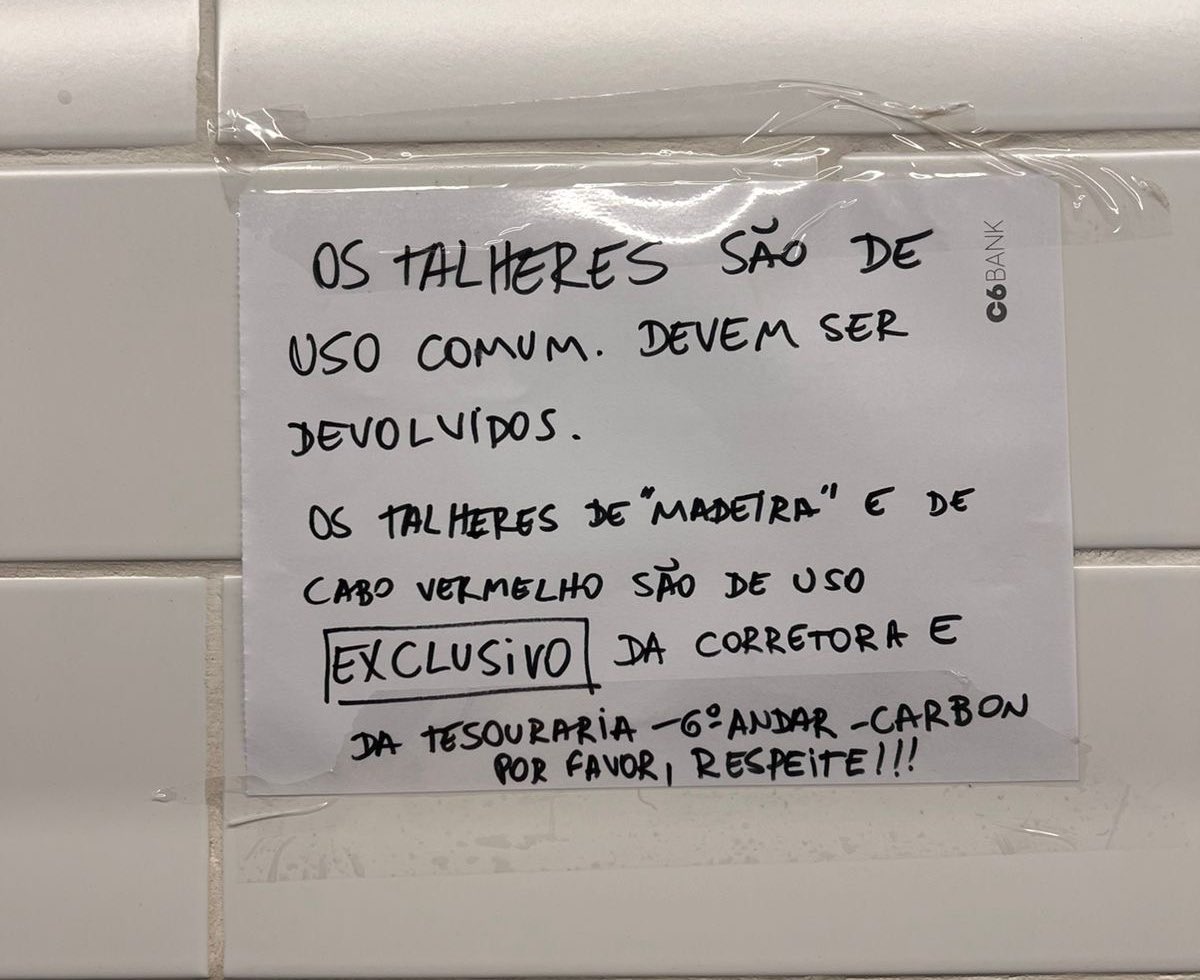 OS TALHERES SÃO DE
USO COMUM. DEVEM SER
DEVOLVIDOS.
OS TALHERES DE "MADEIRA" E DE
CABO VERMELHO SÃO DE USO
EXCLUSIVO DA CORRETORA E
DA TESOURARIA - 6º ANDAR - CARBON
POR FAVOR, RESPEITE!!!
C6BANK